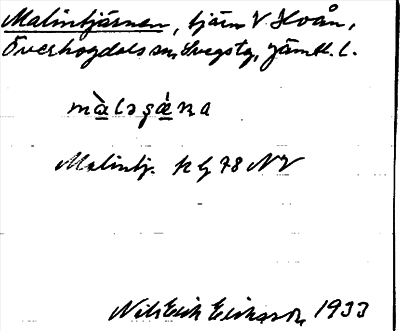 Malintjärnen, tjärn V Hoån,
Överhogdals sn, Svegs tg, Jämtl. l.
màləʂæ̀na
Malintj. kg 78 NV
Nils Erik Eriksson 1933